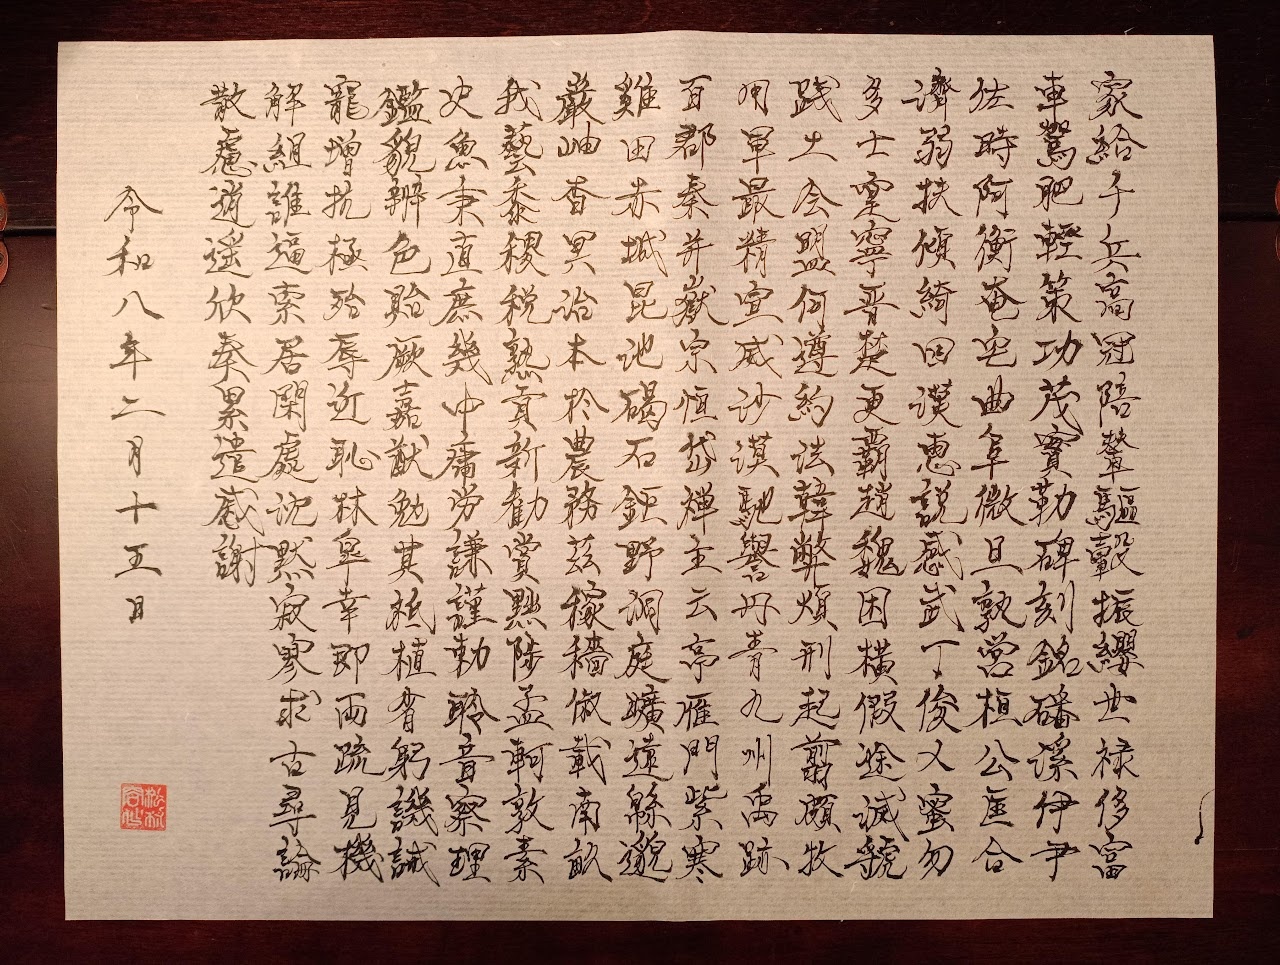 家給千兵高冠陪輦驅轂振纓世禄侈富
車駕肥輕策功茂實勒碑刻銘磻溪伊尹
佐時阿衡奄宅曲阜微旦孰営桓公匡合
濟弱扶傾綺回漢惠説感武丁俊乂蜜勿
多士寔寧晋楚更覇趙魏困横假途滅虢
践土会盟何遵約法韓弊煩刑起翦頗牧
用軍最精宣威沙漠馳譽丹青九州禹跡
百郡秦并嶽宗恒岱禅主云亭雁門紫寒
雞田赤城昆池碣石鉅野洞庭曠遠緜邈
巌岫杳冥治本於農務茲稼穡俶載南畝
我藝黍稷税熟貢新勧賞黜陟孟軻敦素
史魚秉直庶幾中庸労謙謹勅聆音察理
鑑貌辨色貽厥嘉猷勉其祗植省躬譏誡
寵増抗極殆辱近恥林皐幸即両疏見機
解組誰逼索居閑處沈黙寂寥求古尋論
散慮逍遥欣奏累遣慼謝
令和八年二月十五日